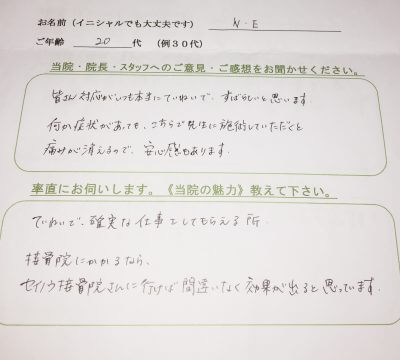 お名前（イニシャルでも大丈夫です） N・E
ご年齢 20 代 （例３０代）
当院・院長・スタッフへのご意見・ご感想をお聞かせください。
皆さん対応がいつも本当にていねいで、すばらしいと思います。
何か症状があっても、こちらで先生に施術していただくと
痛みが消えるので、安心感もあります。
率直にお伺いします。《当院の魅力》教えて下さい。
ていねいで、確実な仕事をしてもらえる所。
接骨院にかかるなら、
セイノウ接骨院さんに行けば間違いなく効果が出ると思っています。